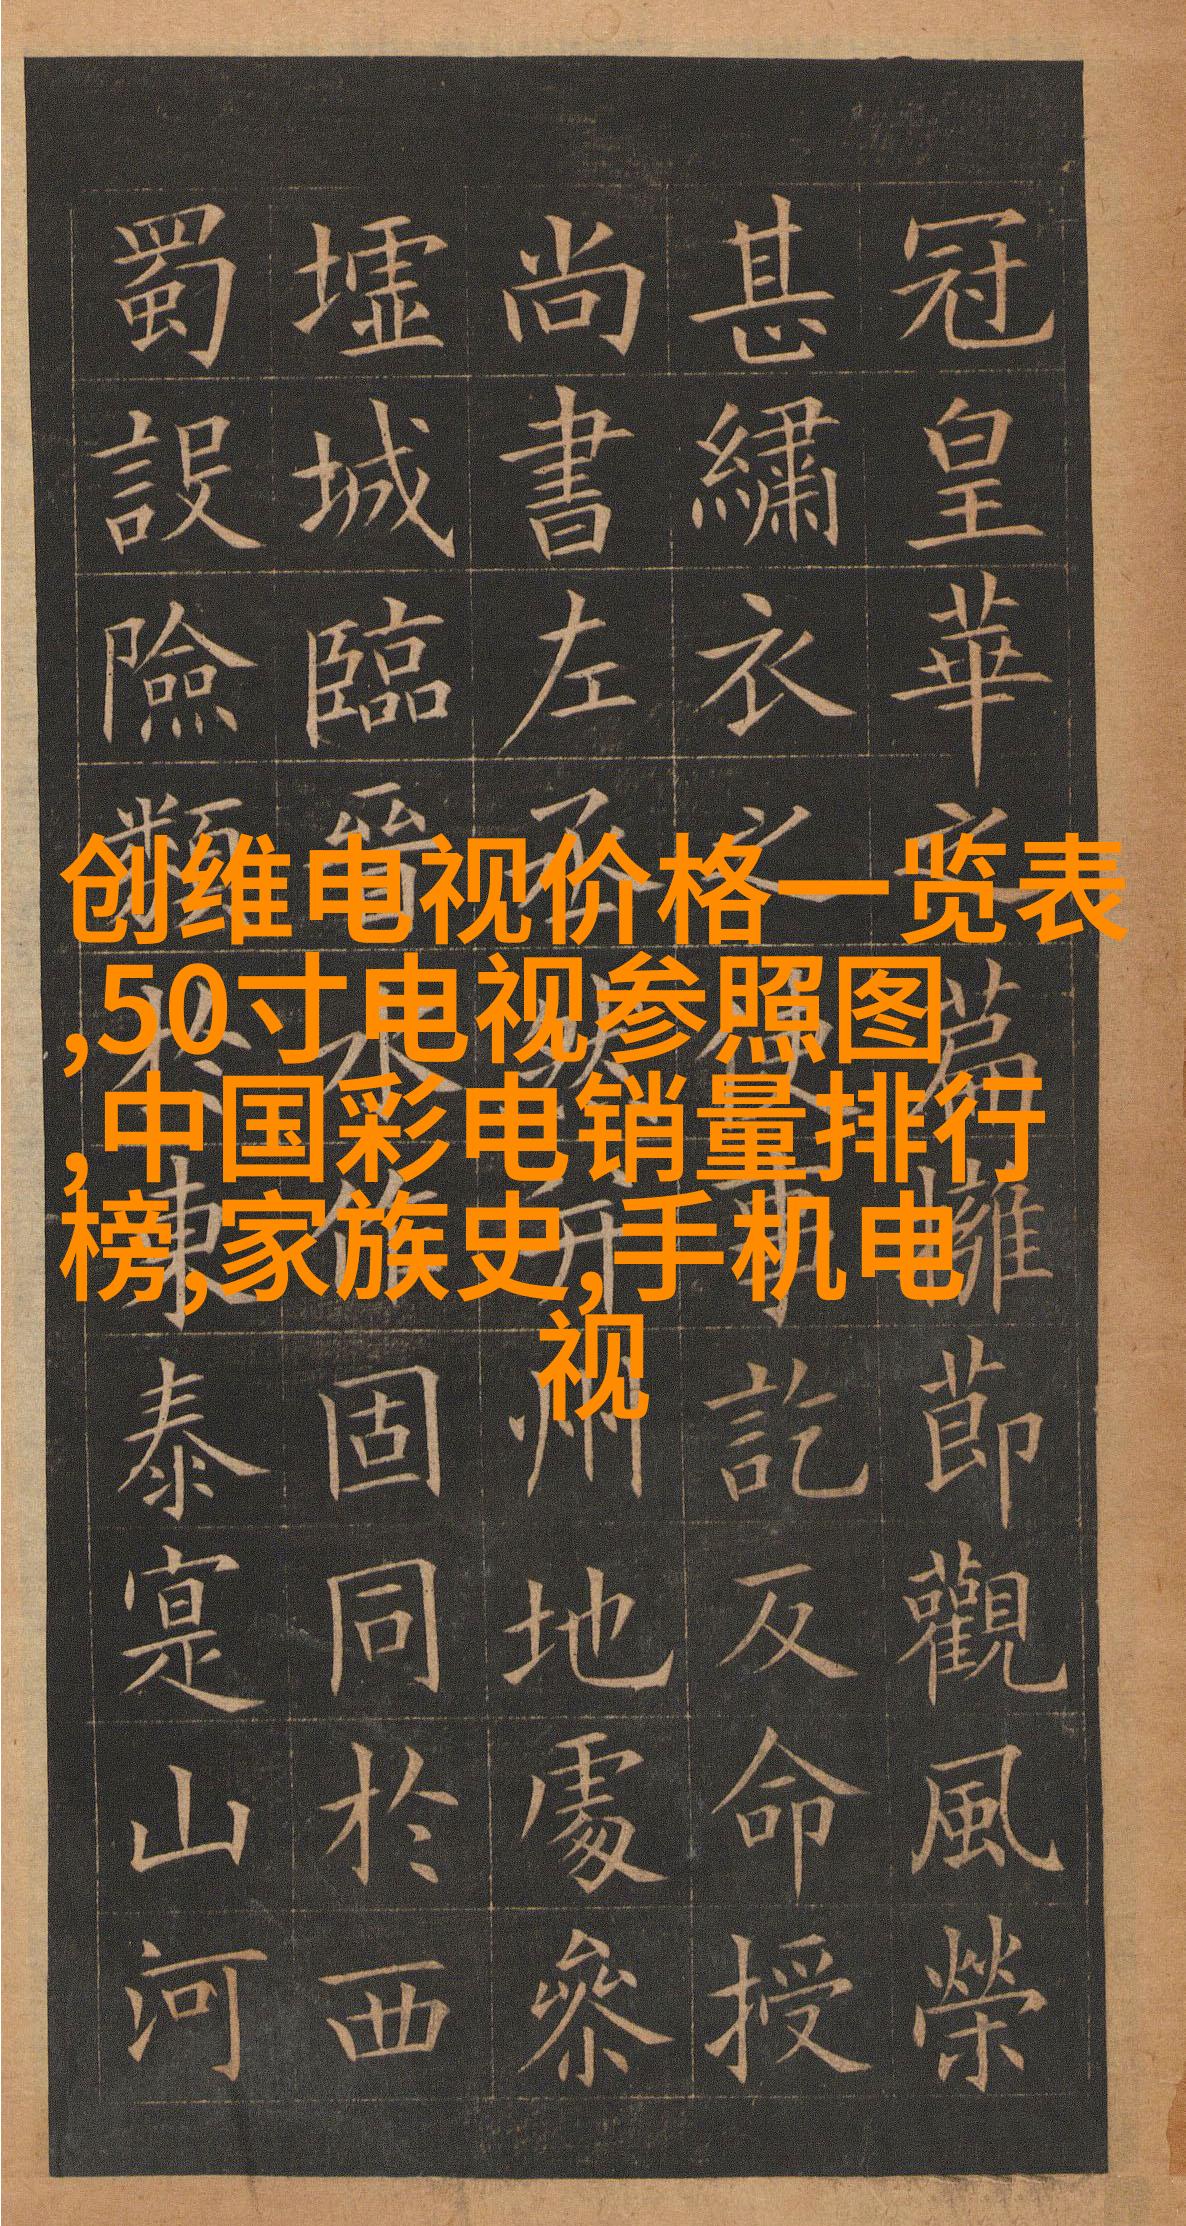 冠皇華之篇擁節觀風榮
甚繡衣之使事訖反命授
尚書左丞并州地處參
墟城臨晉水作固同於西
蜀設險類於東泰寔山河
创维电视价格一览表
,50寸电视参照图
,中国彩电销量排行
榜,家族史,手机电
视